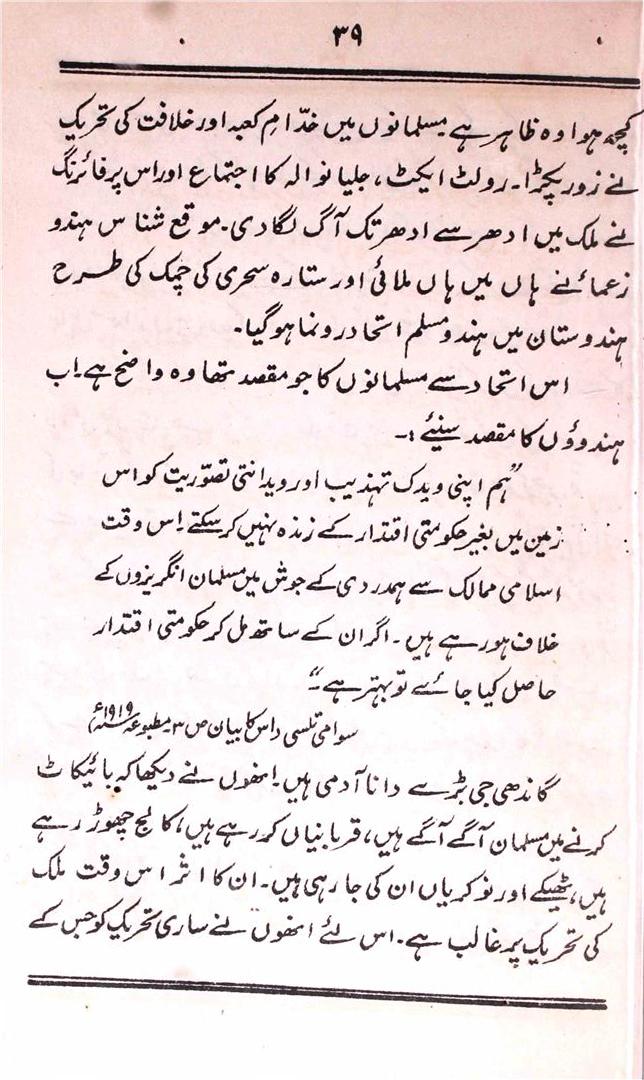 ۳۹
کچھ ہوا وہ ظاہر ہے مسلمانوں میں خدّامِ کعبہ اور خلافت کی تحریک
نے زور پکڑا۔ رولٹ ایکٹ، جلیانوالہ کا اجتماع اور اس پر فائرنگ
نے ملک میں ادھر سے ادھر تک آگ لگا دی۔ موقع شناس ہندو
زعماء نے ہاں میں ہاں ملائی اور ستارہ سحری کی چمک کی طرح
ہندوستان میں ہندو مسلم اتحاد رونما ہو گیا۔
اس اتحاد سے مسلمانوں کا جو مقصد تھا وہ واضح ہے۔ اب
ہندوؤں کا مقصد سنیئے :۔
”ہم اپنی ویدک تہذیب اور ویدانتی تصوّریت کو اس
زمین میں بغیر حکومتی اقتدار کے زندہ نہیں کر سکتے۔ اس وقت
اسلامی ممالک سے ہمدردی کے جوش میں مسلمان انگریزوں کے
خلاف ہو رہے ہیں۔ اگر ان کے ساتھ مل کر حکومتی اقتدار
حاصل کیا جائے تو بہتر ہے۔“
سوامی تلسی داس کا بیان ص ۳۔ مطبوعہ ۱۹۱۹ء
گاندھی جی بڑے دانا آدمی ہیں۔ انھوں نے دیکھا کہ بائیکاٹ
کرنے میں مسلمان آگے آگے ہیں، قربانیاں کر رہے ہیں، کالج چھوڑ رہے
ہیں، ٹھیکے اور نوکریاں ان کی جا رہی ہیں۔ ان کا اثر اس وقت ملک
کی تحریک پر غالب ہے۔ اس لئے انھوں نے ساری تحریک کو جس کے